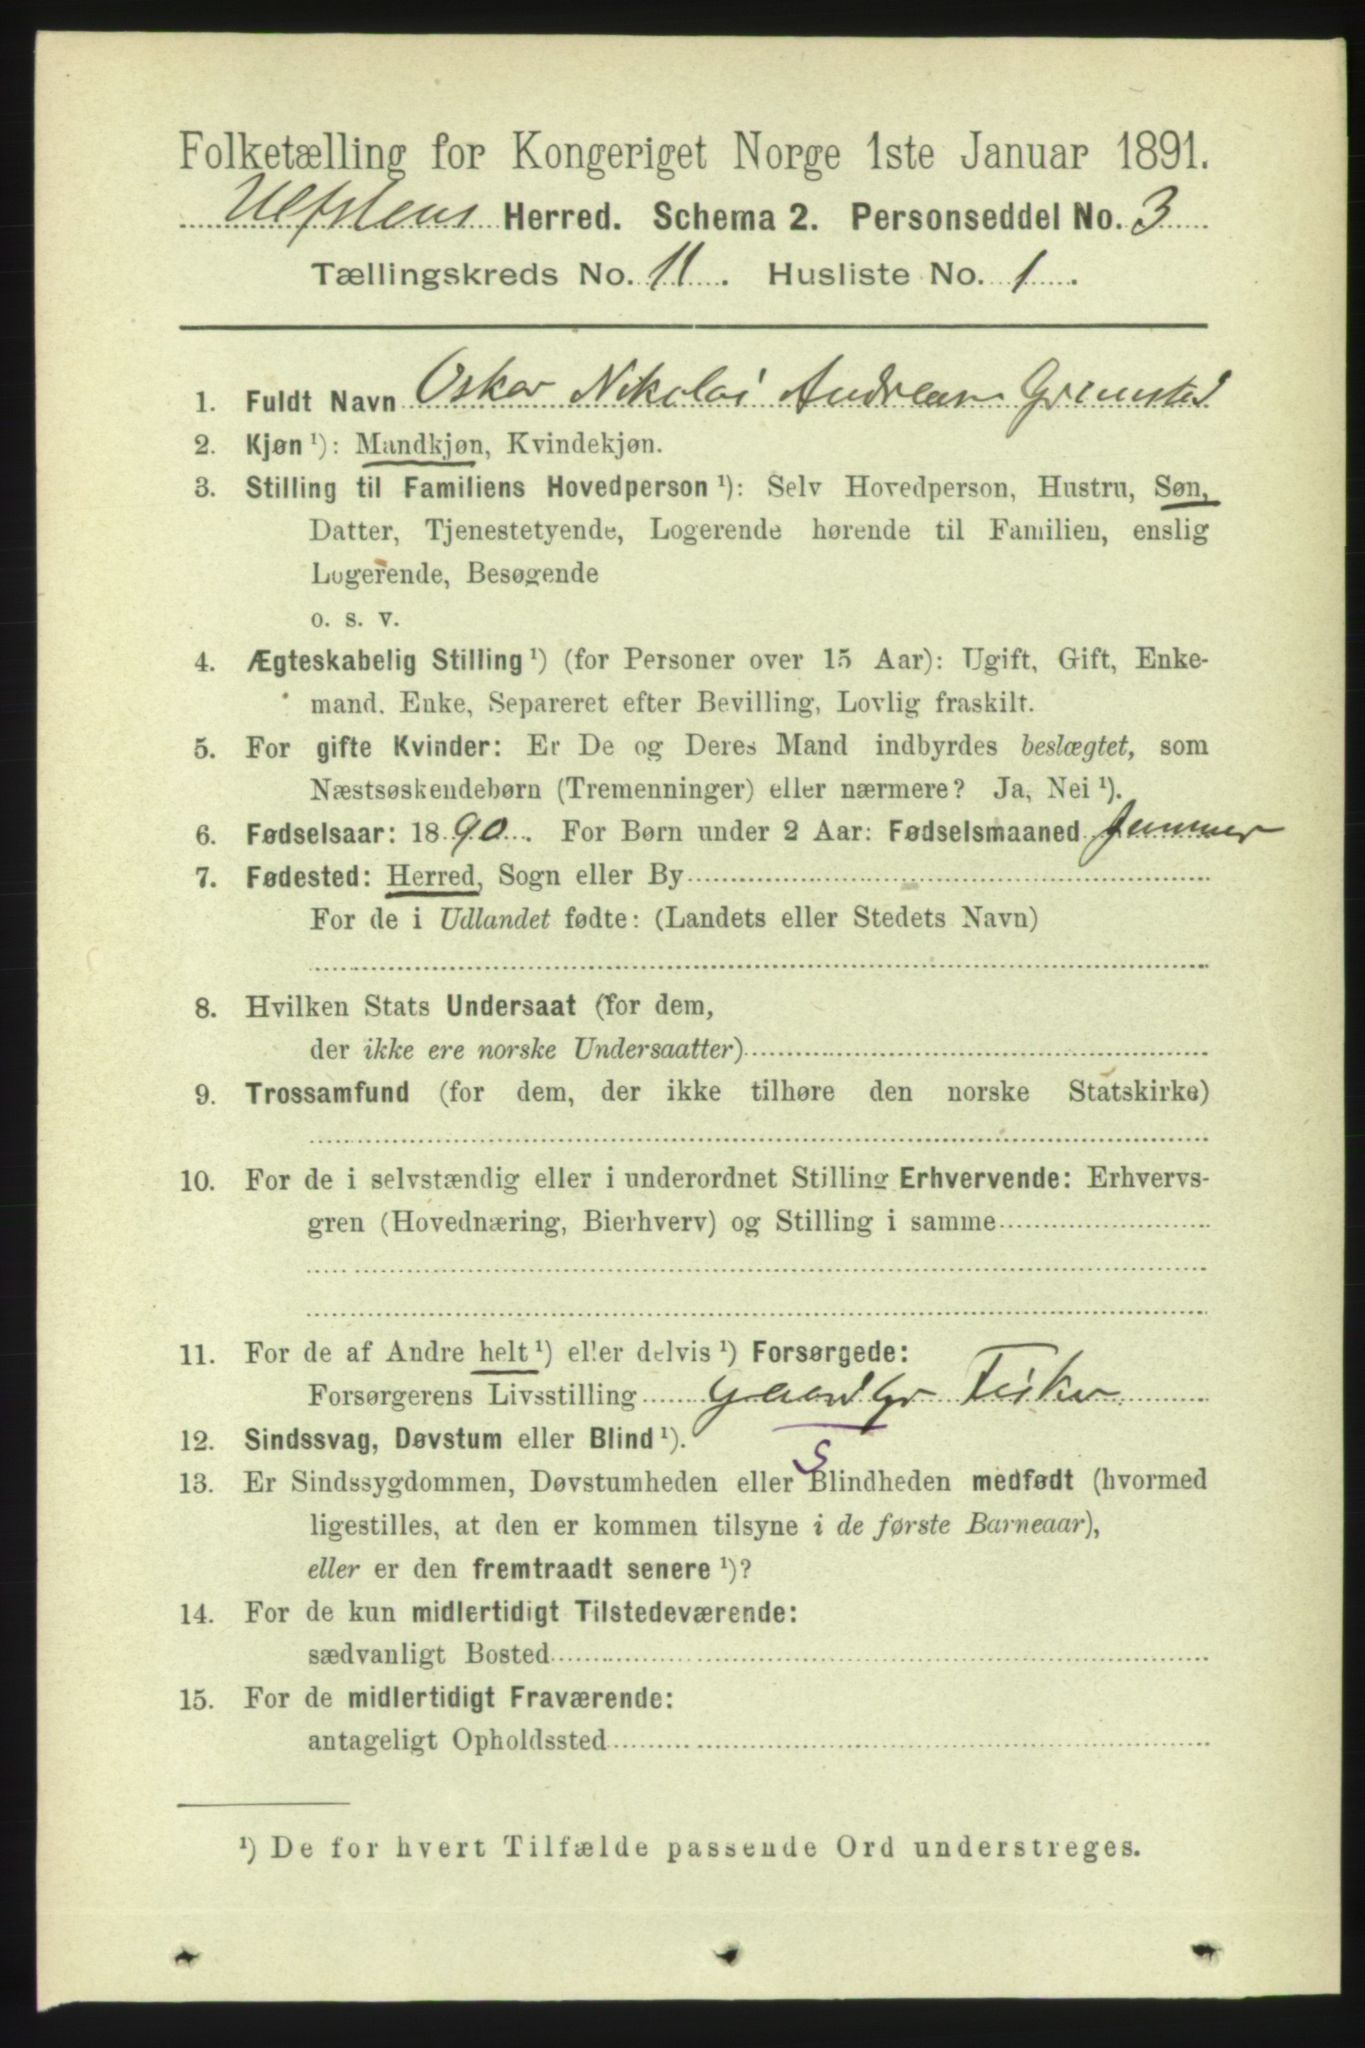 Folketælling for Kongeriget Norge 1ste Januar 1891.
Ulfstens Herred. Schema 2. Personseddel No. 3
Tællingskreds No. 11. Husliste No. 1.
1. Fuldt Navn Oskar Nikolai Andreas Grimstad
2. Kjøn ¹): Mandkjøn, Kvindekjøn.
3. Stilling til Familiens Hovedperson ¹): Selv Hovedperson, Hustru, Søn,
Datter, Tjenestetyende, Logerende hørende til Familien, enslig
Logerende, Besøgende
o. s. v.
4. Ægteskabelig Stilling ¹) (for Personer over 15 Aar): Ugift, Gift, Enke-
mand, Enke, Separeret efter Bevilling, Lovlig fraskilt.
5. For gifte Kvinder: Er De og Deres Mand indbyrdes beslægtet, som
Næstsøskendebørn (Tremenninger) eller nærmere? Ja, Nei ¹).
6. Fødselsaar: 1890. For Børn under 2 Aar: Fødselsmaaned Januar
7. Fødested: Herred, Sogn eller By
For de i Udlandet fødte: (Landets eller Stedets Navn)
8. Hvilken Stats Undersaat (for dem,
der ikke ere norske Undersaatter)
9. Trossamfund (for dem, der ikke tilhøre den norske Statskirke)
10. For de i selvstændig eller i underordnet Stilling Erhvervende: Erhvervs-
gren (Hovednæring, Bierhverv) og Stilling i samme
11. For de af Andre helt ¹) eller delvis ¹) Forsørgede:
Forsørgerens Livsstilling Gaardbr Fisker
12. Sindssvag, Døvstum eller Blind ¹).
S
13. Er Sindssygdommen, Døvstumheden eller Blindheden medfødt (hvormed
ligestilles, at den er kommen tilsyne i de første Barneaar),
eller er den fremtraadt senere ¹)?
14. For de kun midlertidigt Tilstedeværende:
sædvanligt Bosted
15. For de midlertidigt Fraværende:
antageligt Opholdssted
¹) De for hvert Tilfælde passende Ord understreges.